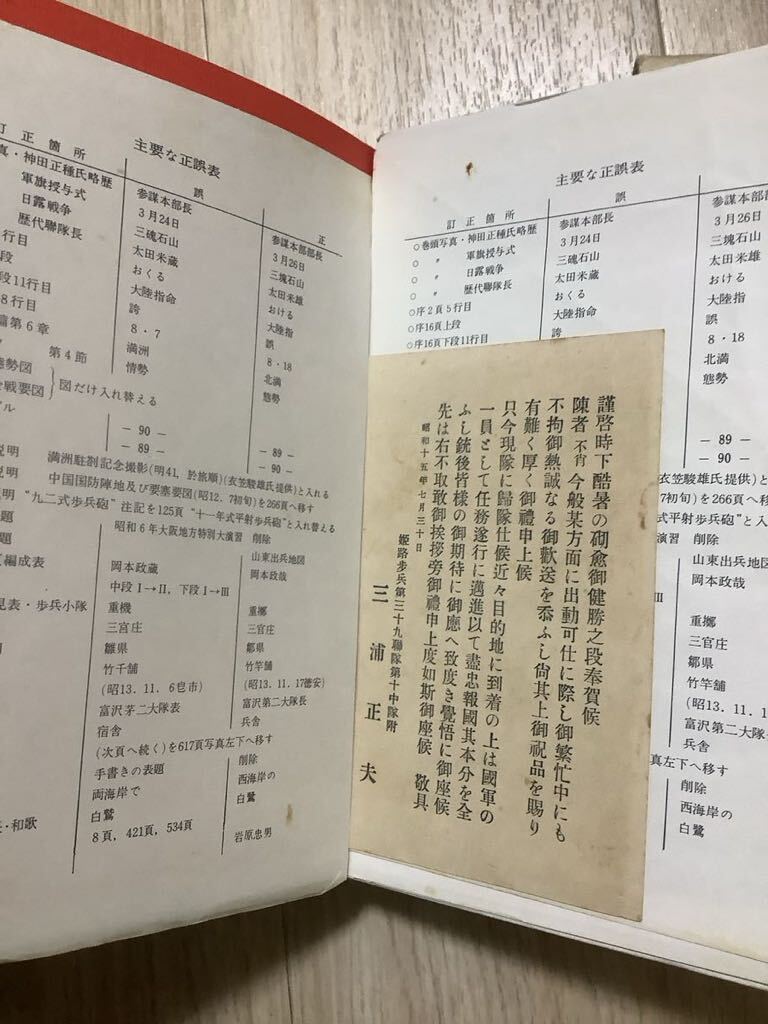 主要な正誤表
訂正箇所 誤 正
真・神田正種氏略歴 参謀本部長 参謀本部部長
軍旗授与式 3月24日 3月26日
日露戦争 三魂石山 三塊石山
歴代聯隊長 太田米蔵 太田米雄
行目 おくる おける
段 大陸指命 大陸指
段11行目 誇 誤
8行目 8・7 8・18
篇第6章 満洲 北満
第4節 情勢 態勢
態勢図
戦要図 図だけ入れ替える
ブル
－90－ －89－
－89－ －90－
説明 満洲駐剳記念撮影(明41,於旅順)(衣笠駿雄氏提供)と入れる
説明 中国国防陣地及び要塞要図(昭12.7初旬)を266頁へ移す
説明 "九二式歩兵砲"注記を125頁"十一年式平射歩兵砲"と入れ替える
題 昭和6年大阪地方特別大演習 削除
題 山東出兵地図
編成表 岡本政蔵 岡本政哉
中段Ⅰ→Ⅱ,下段Ⅰ→Ⅲ
見表・歩兵小隊 重機 重擲
三宮庄 三官庄
雛県 鄒県
竹千舗 竹竿舗
(昭13.11.6皀市) (昭13.11.17徳安)
富沢茅二大隊表 富沢第二大隊長
宿舎 兵舎
(次頁へ続く)を617頁写真左下へ移す
手書きの表題 削除
両海岸で 西海岸の
・和歌 白鷲 白鷺
8頁,421頁,534頁 岩原忠男
主要な正誤表
訂正箇所 誤
○巻頭写真・神田正種氏略歴 参謀本部長 参謀本部部
○ 〃 軍旗授与式 3月24日 3月26日
○ 〃 日露戦争 三魂石山 三塊石山
○ 〃 歴代聯隊長 太田米蔵 太田米雄
○序2頁5行目 おくる おける
○序16頁上段 大陸指命 大陸指
○序16頁下段11行目 誇 誤
8・18
北満
態勢
－89－
－90－
衣笠駿雄氏提供)と入れる
7初旬)を266頁へ移す
歩兵砲"と入れ替える
演習 削除
山東出兵地図
岡本政哉
Ⅲ
重擲
三官庄
鄒県
竹竿舗
(昭13.11.1
富沢第二大隊
兵舎
真左下へ移す
削除
西海岸の
白鷺
謹啓時下酷暑の砌愈御健勝之段奉賀候
陳者不肖今般某方面に出動可仕に際し御繁忙中にも
不拘御熱誠なる御歡送を忝ふし尙其上御祝品を賜り
有難く厚く御禮申上候
只今現隊に歸隊仕候近々目的地に到着の上は國軍の
一員として任務遂行に邁進以て盡忠報國其本分を全
ふし銃後皆様の御期待に御應へ致度き覺悟に御座候
先は右不取敢御挨拶旁御禮申上度如斯御座候 敬具
昭和十五年七月三十日
姫路步兵第三十九聯隊第十中隊附
三浦正夫